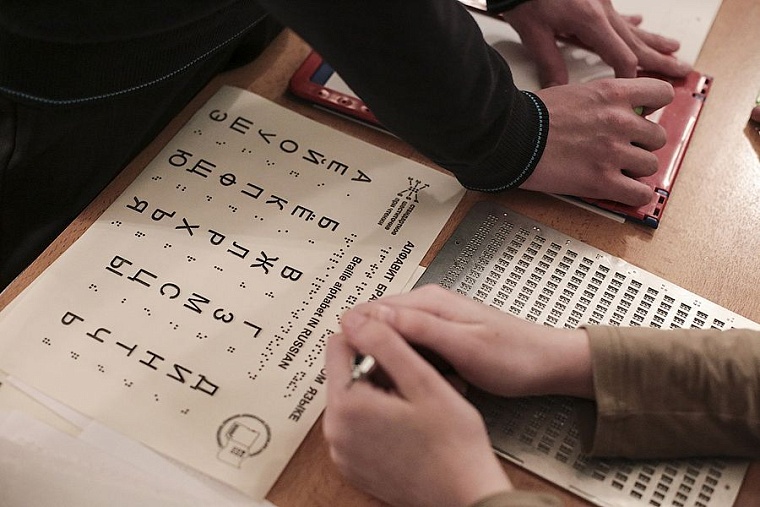 АЛФАВИТ БРА ОМ ЯЗЫКЕ
Braille alphabet IN RUSSIAN
А Б В Г Д
Е Ё Ж З И
Й К Л М Н
О П Р С Т
У Ф Х Ц Ч
Ш Щ Ъ Ы Ь
Э Ю Я